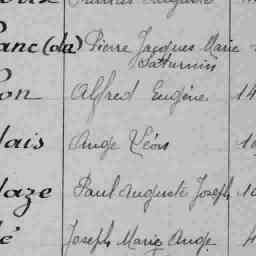 anc (du) Pierre Jacques Marie
Saturnin
on Alfred Eugène 14
lais Ange Léon
laze Paul Auguste Joseph
é Joseph Marie Ange